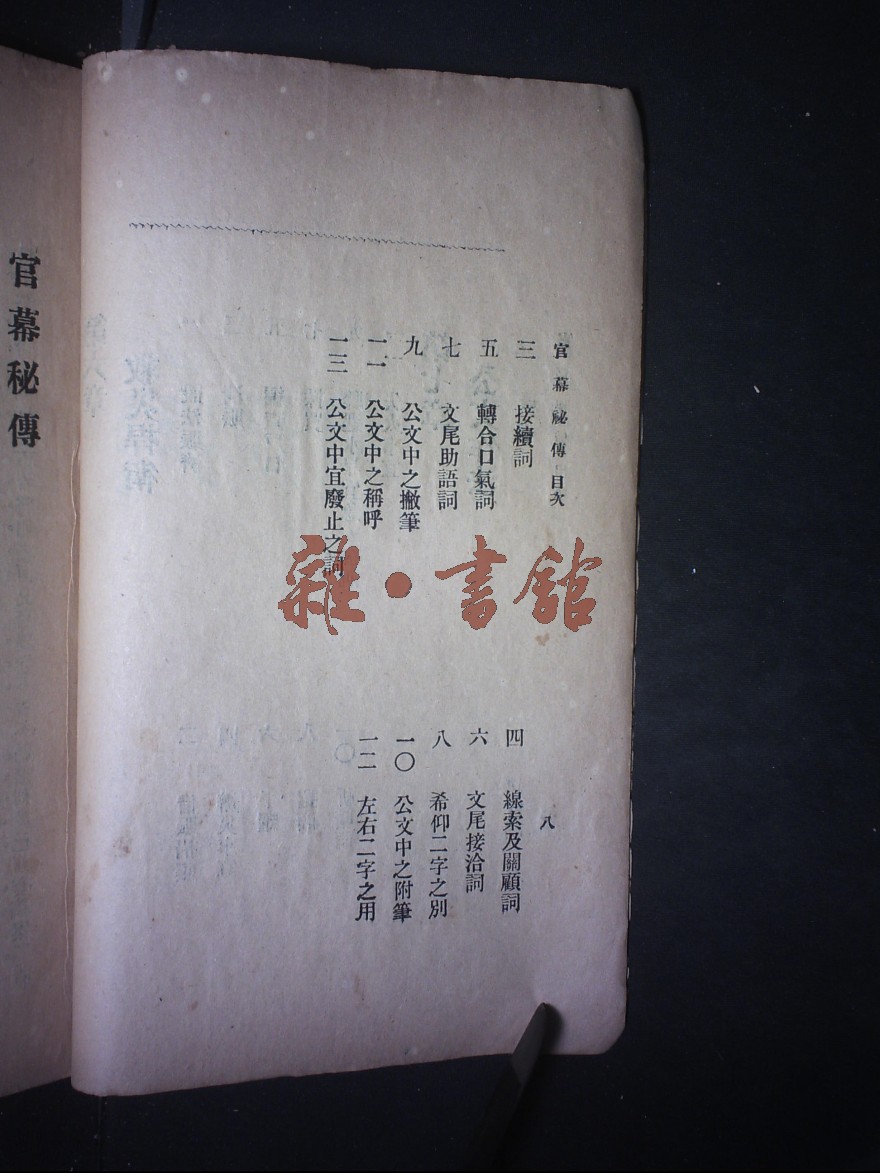 官幕秘傳目次
八
三 接續詞
四 線索及關顧詞
五 轉合口氣詞
六 文尾接洽詞
七 文尾助語詞
八 希仰二字之別
九 公文中之撇筆
一〇 公文中之附筆
一一 公文中之稱呼
一二 左右二字之用
一三 公文中宜廢止之詞
官幕秘傳
雜·書館